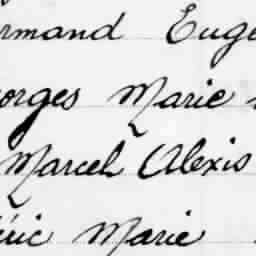 rmand Euge
orges Marie
Marcel Alexis
éric Marie